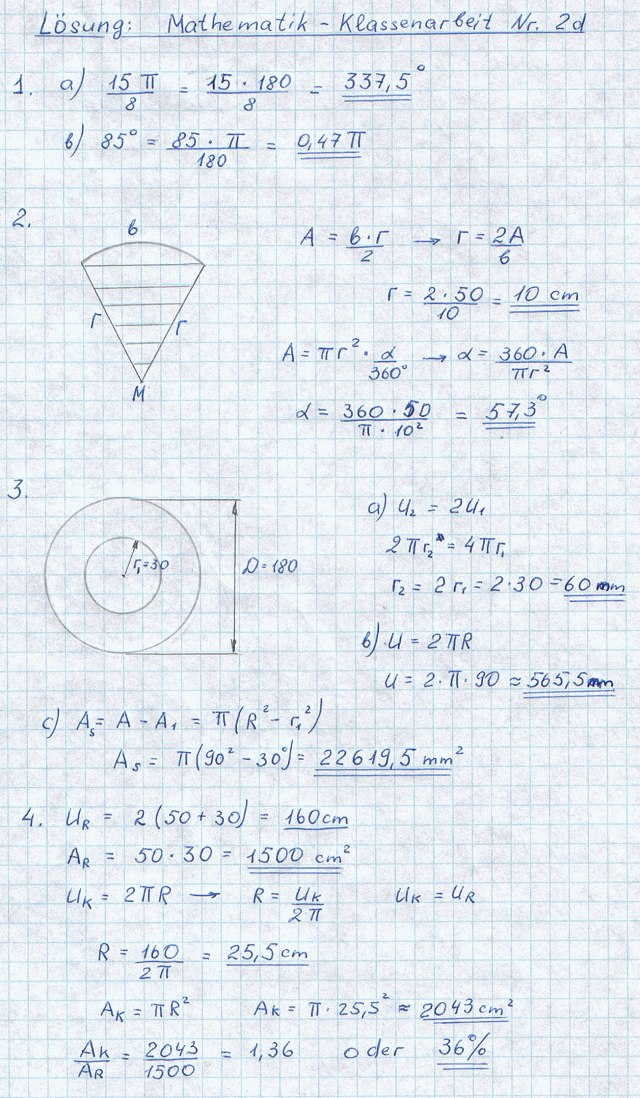 Lösung: Mathematik - Klassenarbeit Nr. 2d
1. a) 15 π / 8 = 15 · 180 / 8 = 337,5°
b) 85° = 85 · π / 180 = 0,47 π
2.
b
r r
M
A = b · r / 2 → r = 2A / b
r = 2 · 50 / 10 = 10 cm
A = πr² · α / 360° → α = 360 · A / πr²
α = 360 · 50 / π · 10² = 57,3°
3.
r₁=30
D=180
a) U₂ = 2U₁
2πr₂ = 4πr₁
r₂ = 2r₁ = 2·30 = 60 mm
b) U = 2πR
U = 2·π·90 ≈ 565,5 mm
c) Aₛ = A - A₁ = π(R² - r₁²)
Aₛ = π(90² - 30²) = 22619,5 mm²
4. U_R = 2(50+30) = 160cm
A_R = 50·30 = 1500 cm²
U_K = 2πR → R = U_K / 2π U_K = U_R
R = 160 / 2π = 25,5 cm
A_K = πR² A_K = π·25,5² ≈ 2043 cm²
A_K / A_R = 2043 / 1500 = 1,36 oder 36%